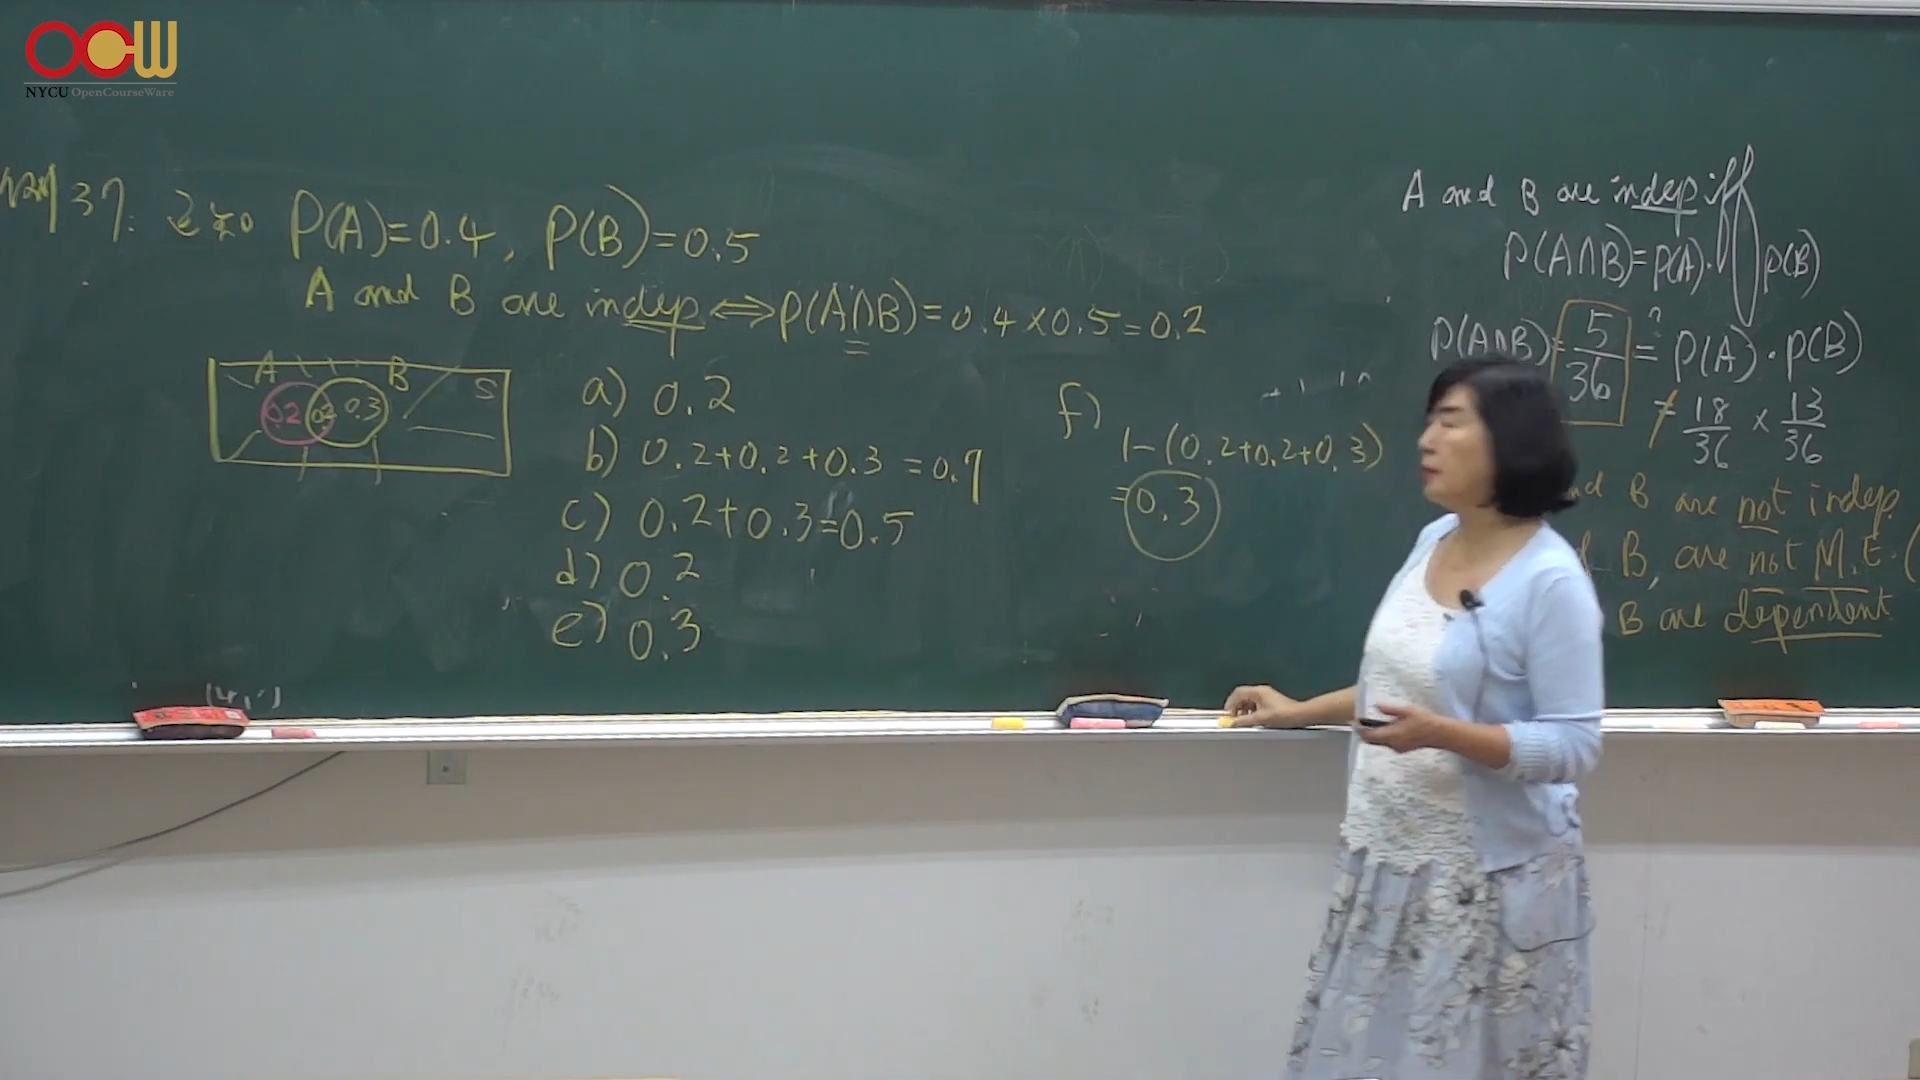 OCW
NYCU OpenCourseWare
例 37: 已知 P(A)=0.4, P(B)=0.5
A and B are indep ⟺ P(A∩B)=0.4×0.5=0.2
A B S
0.2 0.2 0.3
a) 0.2
b) 0.2+0.2+0.3 =0.7
c) 0.2+0.3=0.5
d) 0.2
e) 0.3
f) 1-(0.2+0.2+0.3)
=0.3
A and B are indep iff
P(A∩B)=P(A)·P(B)
P(A∩B)=5/36 ?= P(A)·P(B)
≠ 18/36 × 13/36
B are not indep.
B, are not M.E. (
B are dependent.